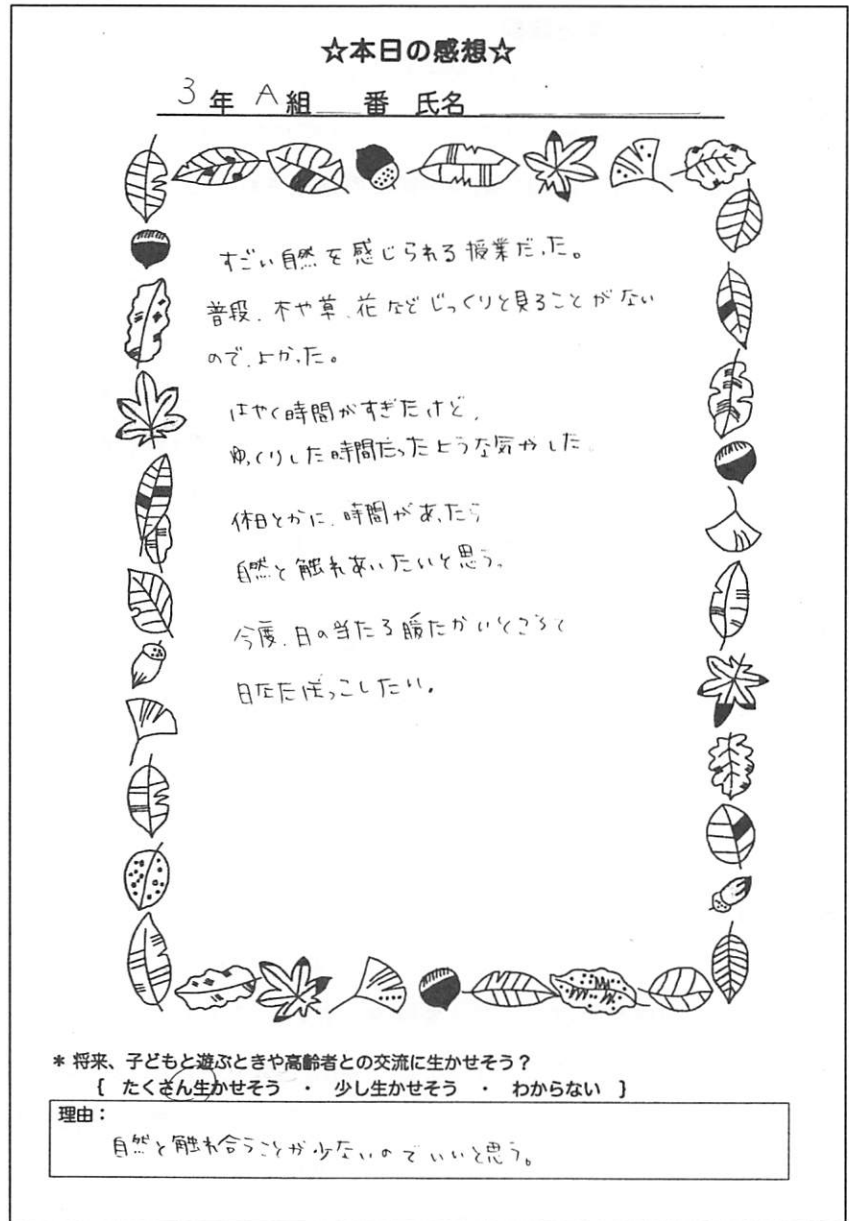 ☆本日の感想☆
3年 A組 番 氏名
すごい自然を感じられる授業だった。
普段、木や草、花などじっくりと見ることがない
ので、よかった。
はやく時間がすぎたけど、
ゆっくりした時間だったような気がした。
休日とかに、時間があったら
自然と触れあいたいと思う。
今度、日の当たる暖たかいところで
日なたぼっこしたい。
* 将来、子どもと遊ぶときや高齢者との交流に生かせそう?
{ たくさん生かせそう ・ 少し生かせそう ・ わからない }
理由:
自然と触れ合うことが少ないのでいいと思う。